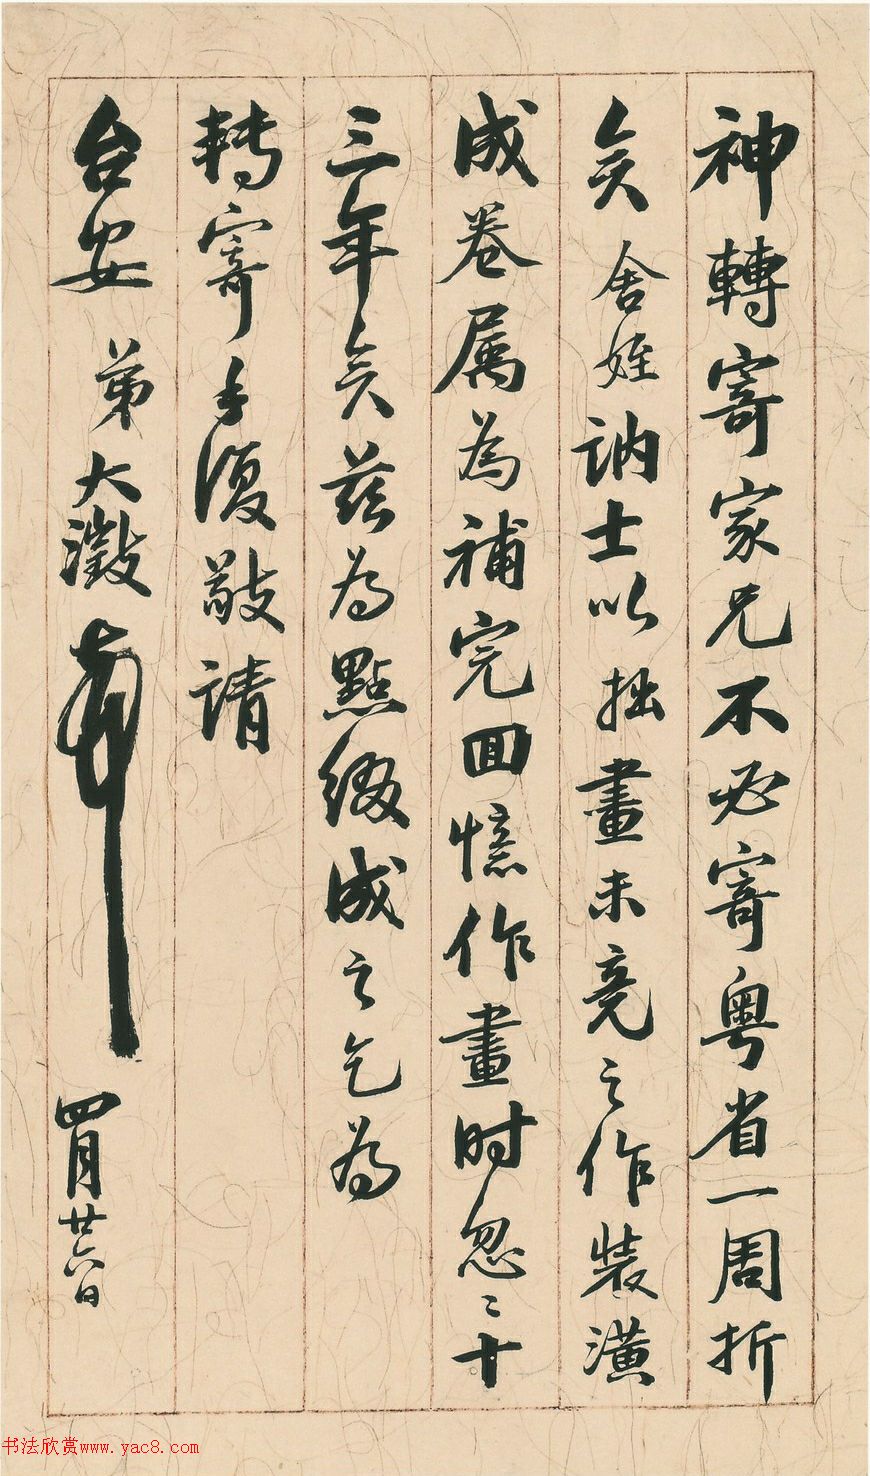 神轉寄家兄不必寄粤省一周折
矣舍姪訥士以拙畫未竟之作裝潢
成卷属為補完回憶作畫时忽〻十
三年矣茲为點綴成之乞为
轉寄手復敬請
台安 弟大澂
四月廿六日
书法欣赏www.yac8.com